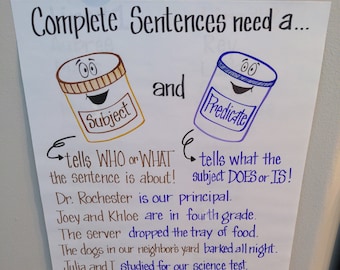 Complete Sentences need a...
Subject and Predicate
tells WHO or WHAT the sentence is about!
tells what the subject DOES or IS!
Dr. Rochester is our principal.
Joey and Khloe are in fourth grade.
The server dropped the tray of food.
The dogs in our neighbor's yard barked all night.
Julia and I studied for our science test.